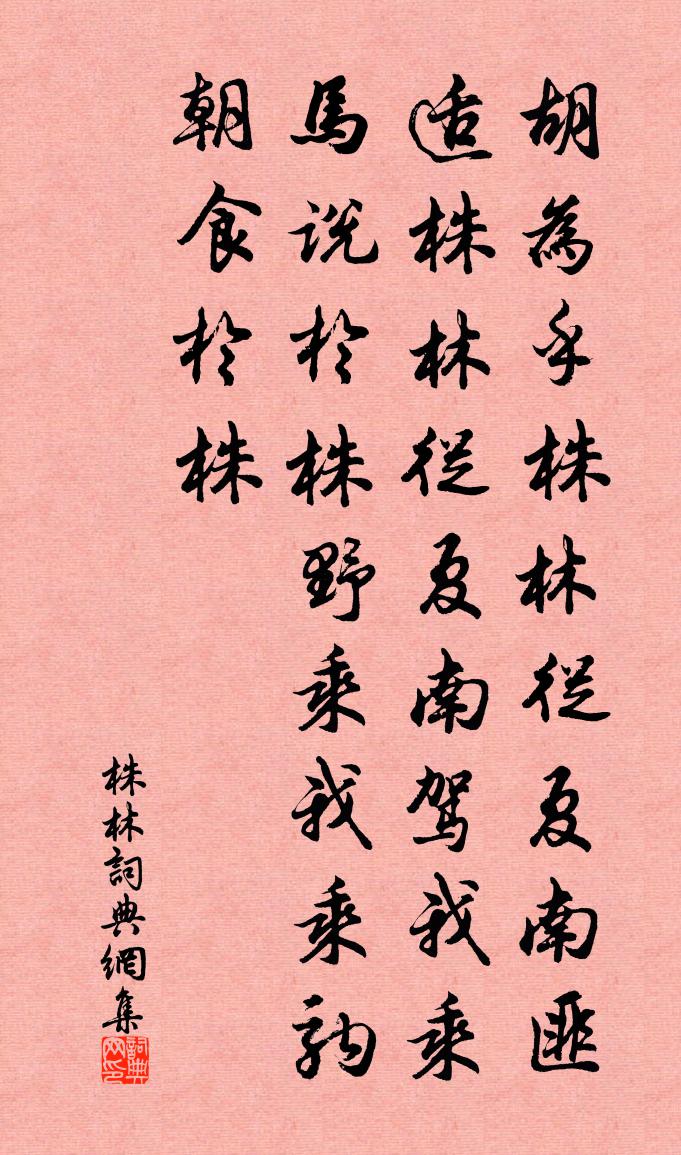 胡為乎株林從夏南匪
适株林從夏南駕我乘
馬說於株野乘我乘駒
朝食於株
株林詞典網集
詞典网印